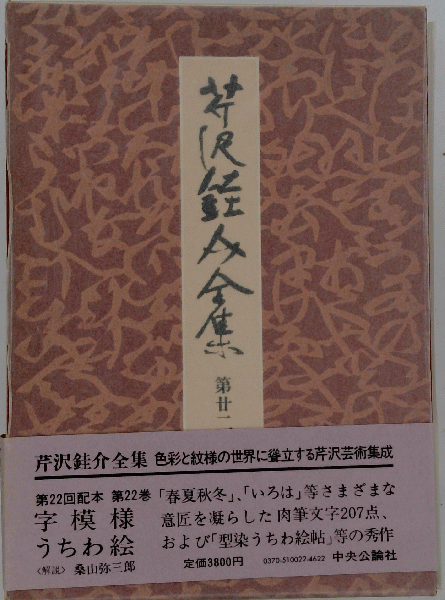 芹沢銈介全集
第廿二
芹沢銈介全集 色彩と紋様の世界に聳立する芹沢芸術集成
第22回配本 第22巻
字模様
うちわ絵
〈解説〉 桑山弥三郎
「春夏秋冬」、「いろは」等さまざまな
意匠を凝らした肉筆文字207点、
および「型染うちわ絵帖」等の秀作
定価3800円 0370-510022-4622 中央公論社